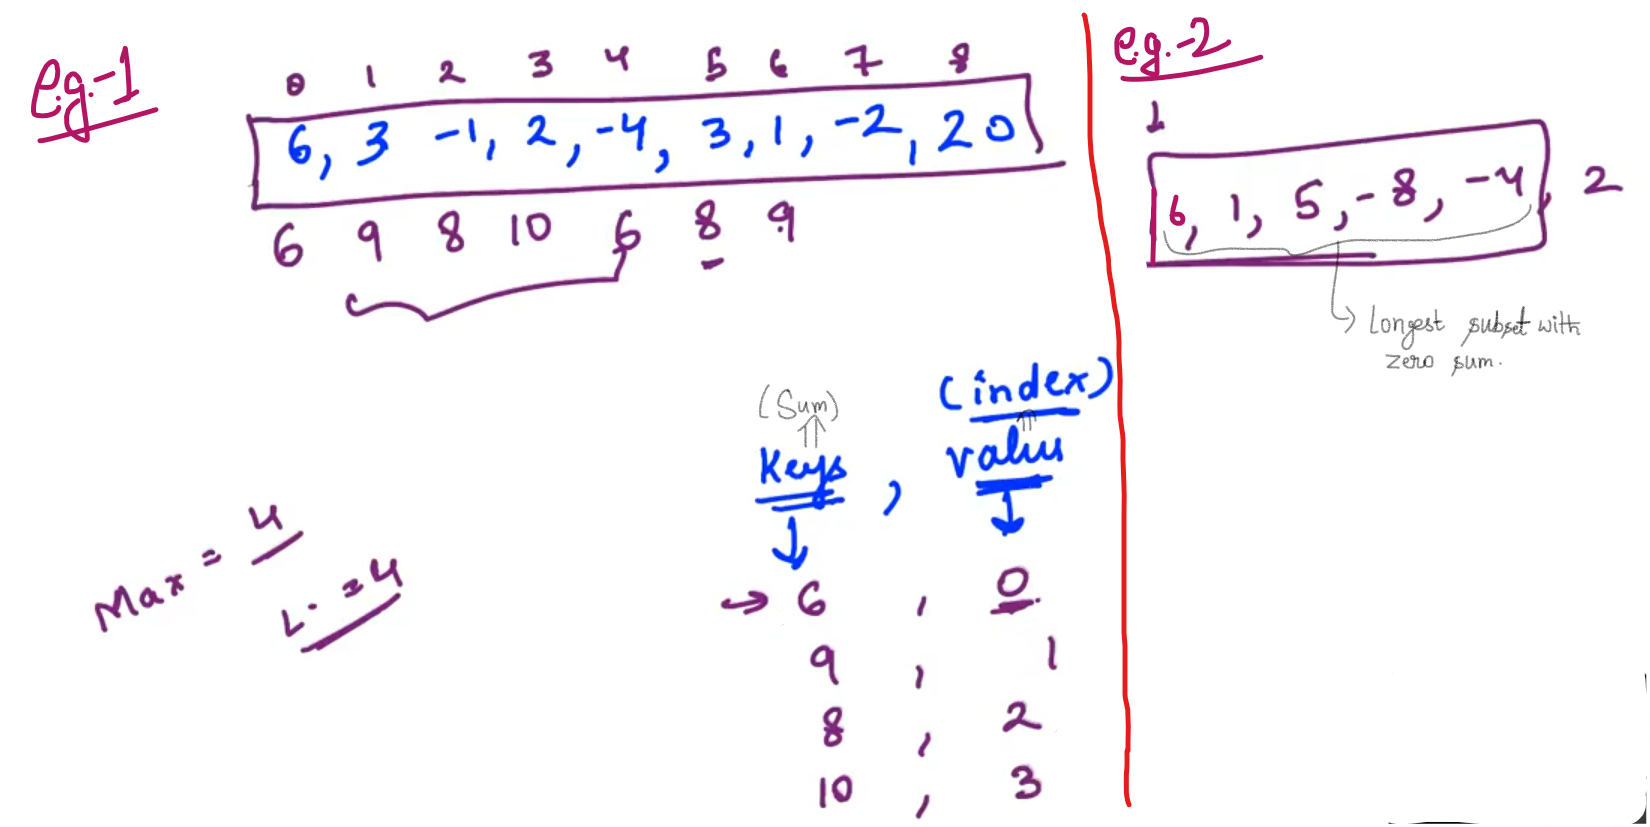 e.g.-1
0 1 2 3 4 5 6 7 8
6, 3 -1, 2, -4, 3, 1, -2, 2 0
6 9 8 10 6 8 9
Max = 4
L. = 4
(Sum) (index)
Keys , value
→ 6 , 0
9 , 1
8 , 2
10 , 3
e.g.-2
6, 1, 5, -8, -4, 2
Longest subset with
zero sum.